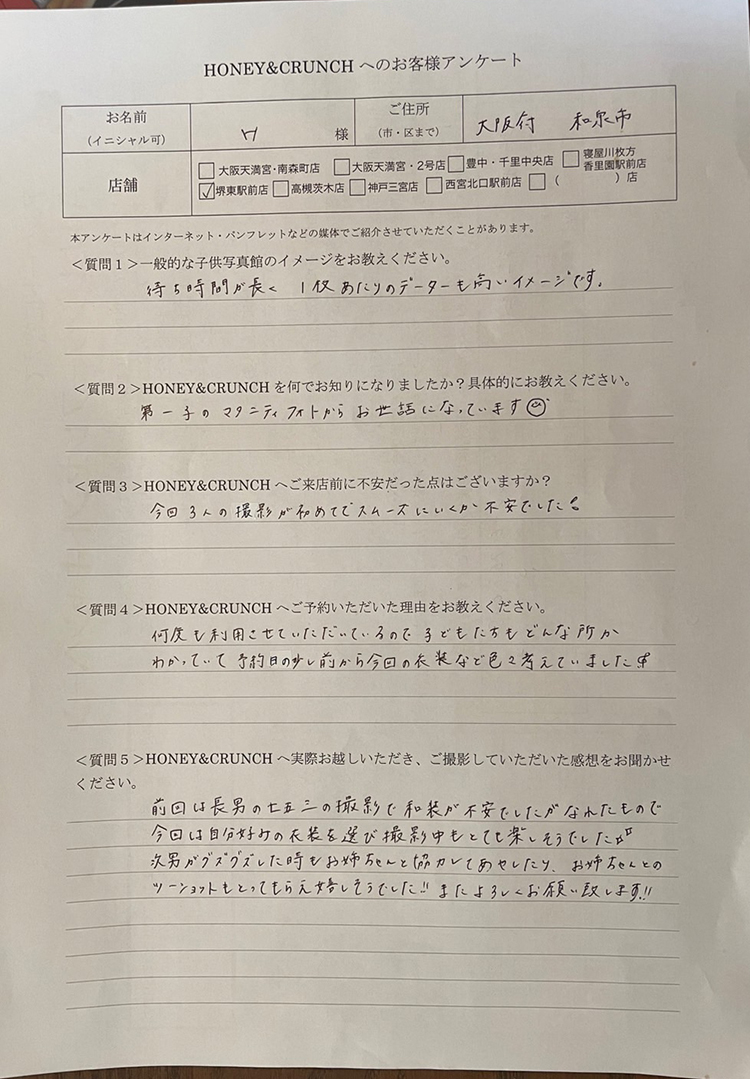 HONEY&CRUNCH へのお客様アンケート
お名前
(イニシャル可)
様
ご住所
(市・区まで)
大阪府 和泉市
店舗
□大阪天満宮・南森町店 □大阪天満宮・2号店 □豊中・千里中央店 □寝屋川枚方香里園駅前店
☑堺東駅前店 □高槻茨木店 □神戸三宮店 □西宮北口駅前店 □( )店
本アンケートはインターネット・パンフレットなどの媒体でご紹介させていただくことがあります。
<質問1>一般的な子供写真館のイメージをお教えください。
待ち時間が長く 1枚あたりのデーターも高いイメージです。
<質問2>HONEY&CRUNCH を何でお知りになりましたか?具体的にお教えください。
第一子のマタニティフォトからお世話になっています☺
<質問3>HONEY&CRUNCH へご来店前に不安だった点はございますか?
今回3人の撮影が初めてでスムーズにいくか不安でした
<質問4>HONEY&CRUNCH へご予約いただいた理由をお教えください。
何度も利用させていただいているので子どもたちもどんな所か
わかっていて予約日の少し前から今回の衣装など色々考えていました
<質問5>HONEY&CRUNCH へ実際お越しいただき、ご撮影していただいた感想をお聞かせ
ください。
前回は長男の七五三の撮影で和装が不安でしたがなれたもので
今回は自分好みの衣装を選び撮影中もとても楽しそうでした
次男がグズグズした時もお姉ちゃんと協力してあやしたり、お姉ちゃんとの
ツーショットもとってもらえ嬉しそうでした!! またよろしくお願い致します!!